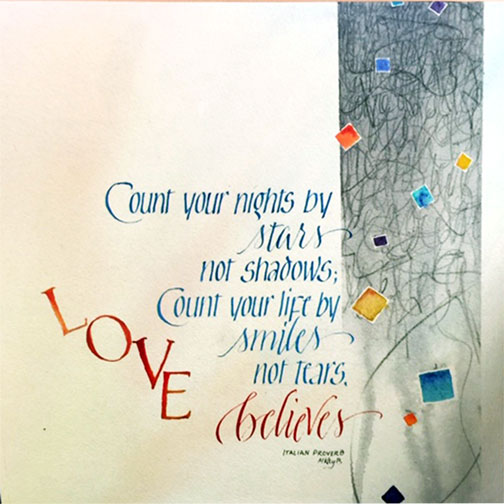 Count your nights by
stars
not shadows;
Count your life by
smiles
not tears.
LOVE
believes
ITALIAN PROVERB